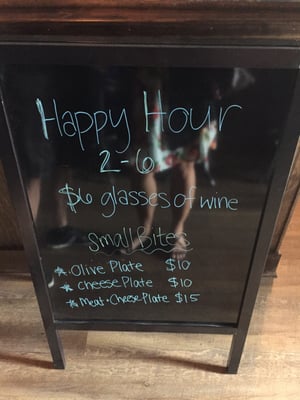 Happy Hour
2-6
$6 glasses of wine
small Bites
* Olive Plate $10
* cheese Plate $10
* Meat + Cheese Plate $15